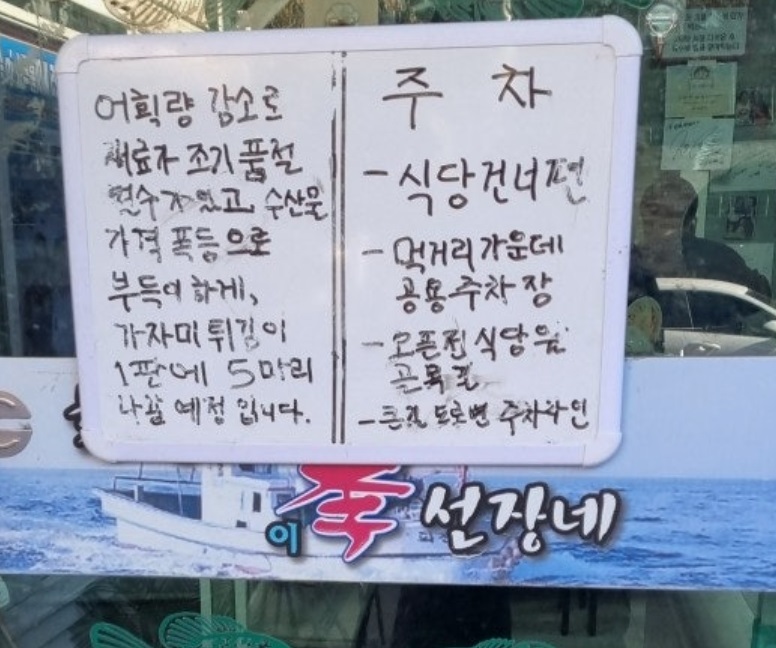 어획량 감소로
재료가 조기 품절
될수가 있고, 수산물
가격 폭등으로
부득이 하게,
가자미 튀김이
1판에 5마리
나갈 예정 입니다.
주 차
- 식당건너편
- 먹거리가운데
공용주차장
- 오픈전 식당앞
골목길
- 큰길 도로변 주차라인
이 선장네